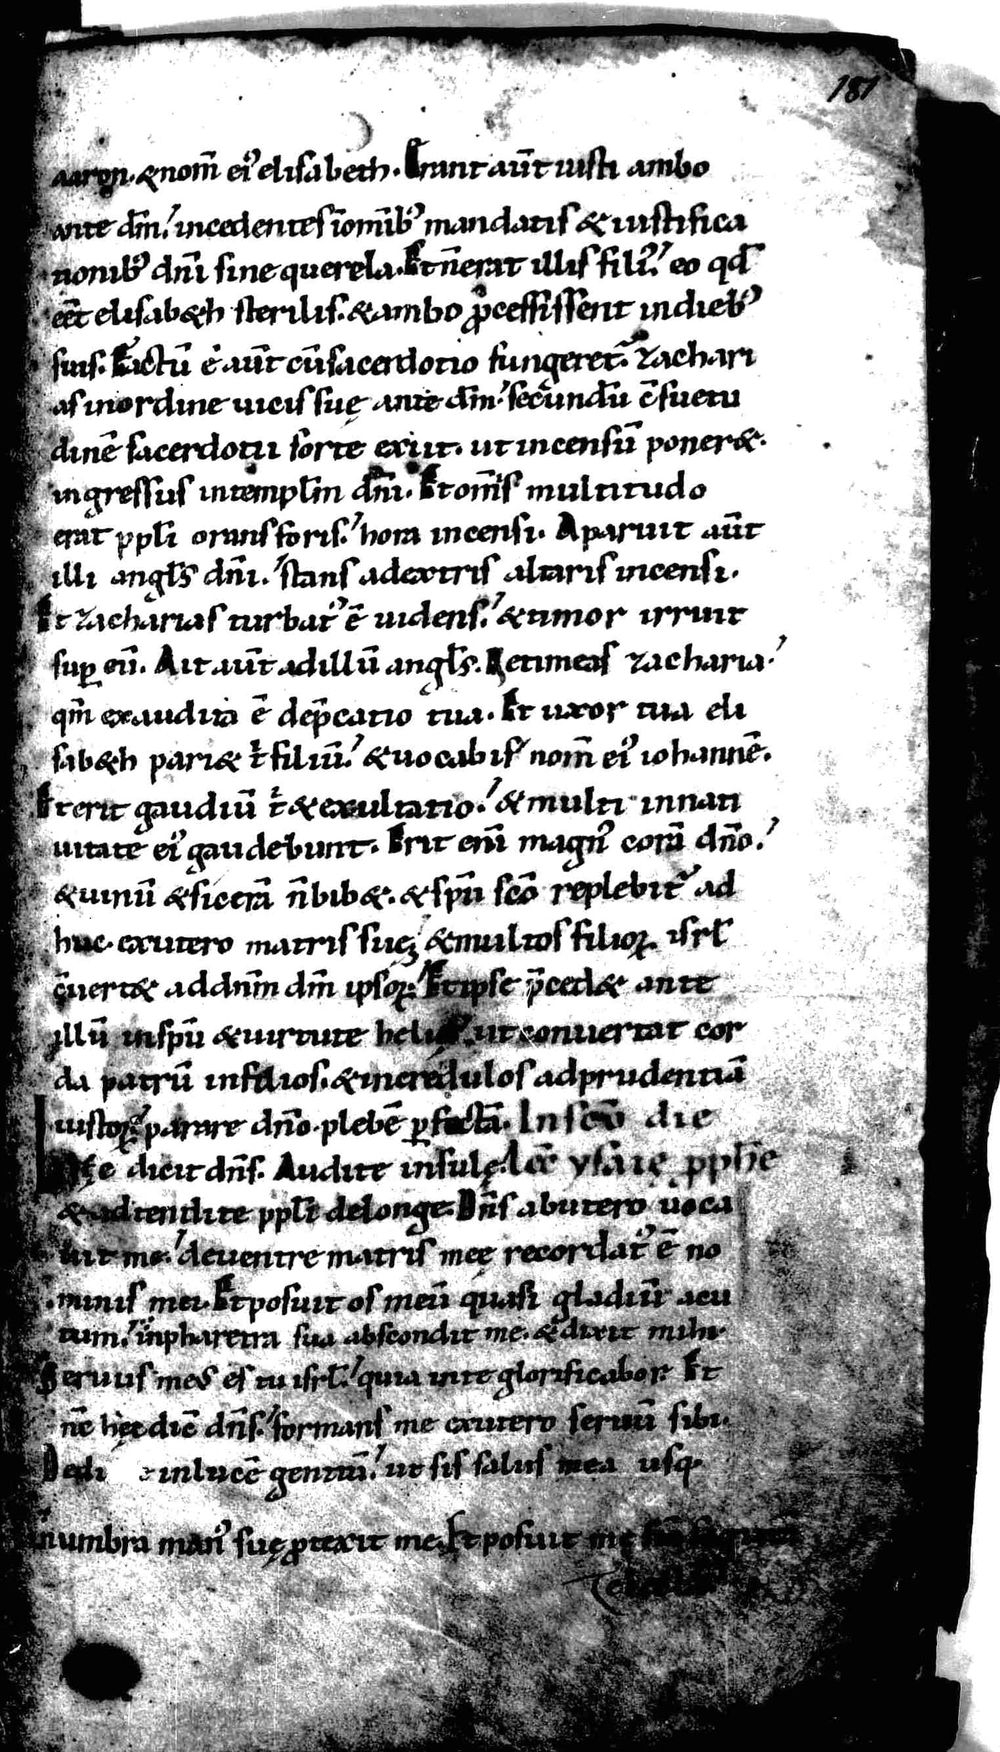 181
aaron. & nom̄ ei᾽ elisabeth. Erant aūt iusti ambo
ante dm̄. incedentes iom̄ib᾽ mandatis & iustifica
tionib᾽ dn̄i sine querela. Et n̄ erat illis fili᾽. eo qđ
eēt elisab&h sterilis. & ambo p̄cessissent indieb᾽
suis. Factū ē aūt cū sacerdotio fungeret᾽ zachari
as inordine uicis suę ante dm̄. secundū c̄suetu
dinē sacerdotii sorte exiit. ut incensū poner&.
ingressus intemplm̄ dn̄i. Et om̄is multitudo
erat ppl̄i orans foris. hora incensi. Aparuit aūt
illi angl̄s dn̄i. stans adextris altaris incensi.
Et zacharias turbat᾽ ē uidens. & timor irruit
sup eū. Ait aūt adillū angl̄s. Netimeas zacharia.
qm̄ exaudita ē dep̄catio tua. Et uxor tua eli
sab&h pari& t̄ filiū. & uocabis nom̄ ei᾽ iohannē.
Et erit gaudiū t̄ & exultatio. & multi innati
uitate ei᾽ gaudebunt. Erit enī magn᾽ corā dn̄o.
& uinū & sicerā n̄ bib&. & spū scō replebit᾽ ad
huc exutero matris suę & multos filioꝝ isrl̄
c̄uert& addnm̄ dm̄ ipsoꝝ. Et ipse p̄ced& ante
illū inspū & uirtute helię. ut conuertat cor
da patrū infilios. & incredulos adprudentiā
iustoꝝ. parare dn̄o plebē ꝑfectā. In scō die
Hęc dicit dn̄s. Audite insulę. Lec̄ ysaię pph̄e
& adtendite ppl̄i delonge. Dn̄s abutero uoca
uit me. deuentre matris meę recordat᾽ ē no
minis mei. Et posuit os meū quasi gladiū acu
tum. inpharetra sua abscondit me. & dixit mihi.
Seruus meus es tu isrl̄. quia inte glorificabor. Et
nc̄ hęc dic̄ dn̄s. formans me exutero seruū sibi.
Dedi inlucē gentiū. ut sis salus mea usq.
inumbra man᾽ suę ꝓtexit me. Et posuit me